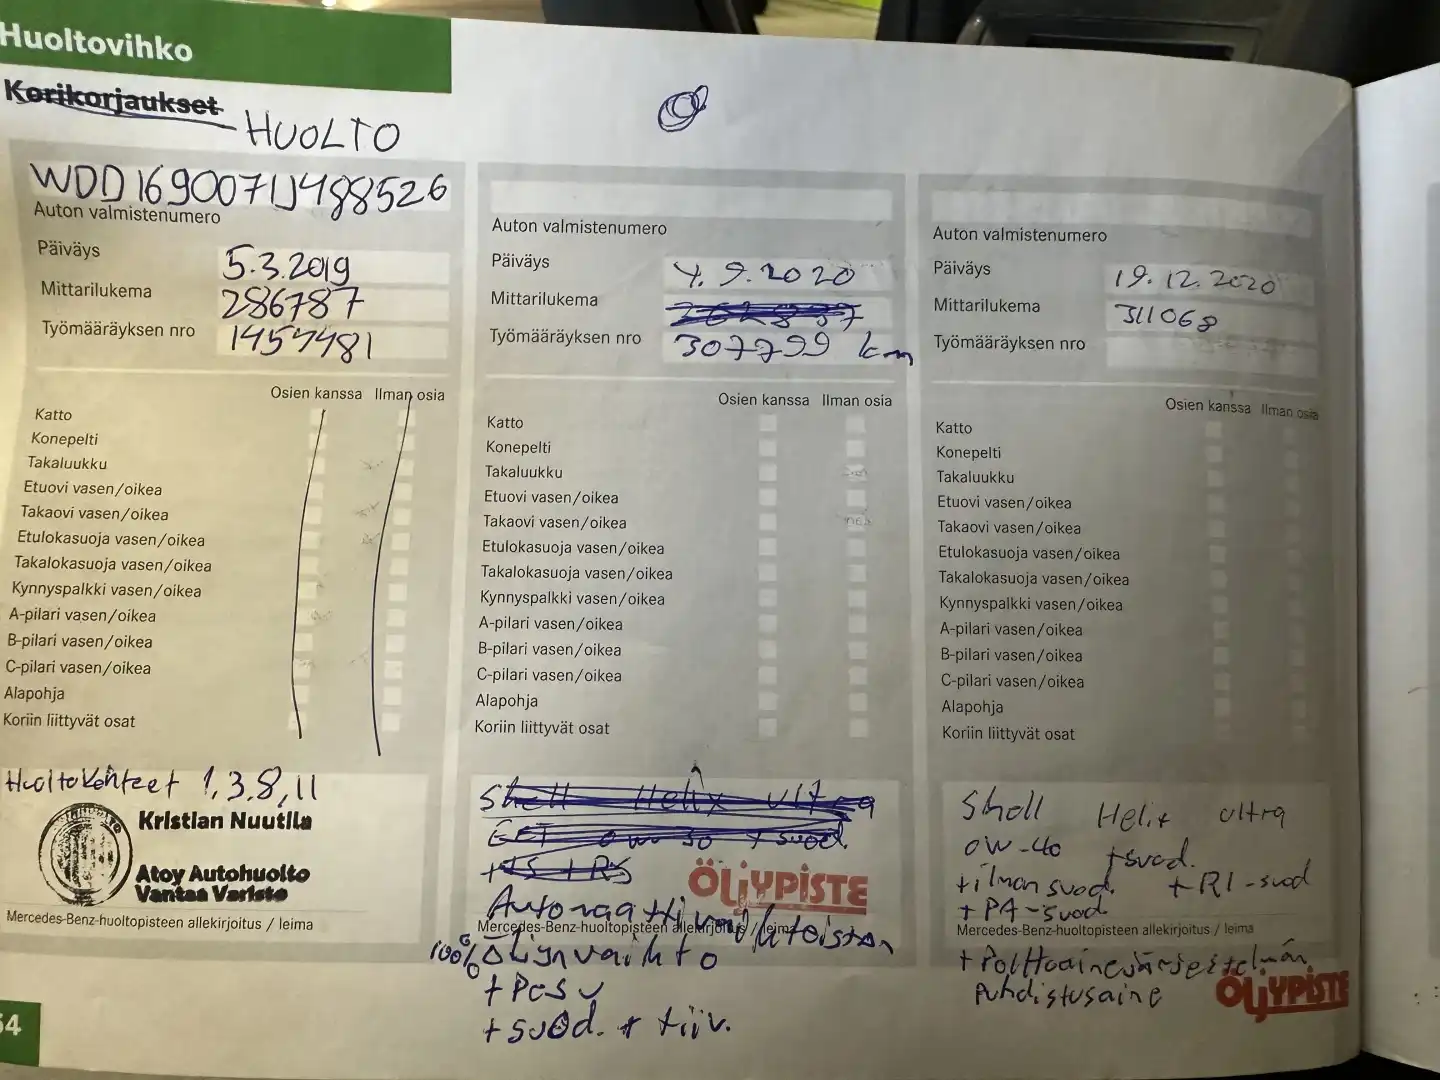 Huoltovihko
Korikorjaukset
HUOLTO
WDD1690071J488526
Auton valmistenumero
Päiväys 5.3.2019
Mittarilukema 286787
Työmääräyksen nro 1454481
Osien kanssa Ilman osia
Katto
Konepelti
Takaluukku
Etuovi vasen/oikea
Takaovi vasen/oikea
Etulokasuoja vasen/oikea
Takalokasuoja vasen/oikea
Kynnyspalkki vasen/oikea
A-pilari vasen/oikea
B-pilari vasen/oikea
C-pilari vasen/oikea
Alapohja
Koriin liittyvät osat
Huoltokohteet 1,3,8,11
Kristian Nuutila
Atoy Autohuolto
Vantaa Varisto
Mercedes-Benz-huoltopisteen allekirjoitus / leima
54
Auton valmistenumero
Päiväys 4.9.2020
Mittarilukema
Työmääräyksen nro 307799 km
Osien kanssa Ilman osia
Katto
Konepelti
Takaluukku
Etuovi vasen/oikea
Takaovi vasen/oikea
Etulokasuoja vasen/oikea
Takalokasuoja vasen/oikea
Kynnyspalkki vasen/oikea
A-pilari vasen/oikea
B-pilari vasen/oikea
C-pilari vasen/oikea
Alapohja
Koriin liittyvät osat
Shell Helix ultra
ECT 0w 30 + suod.
ÖLJYPISTE
Automaattivaihteiston
Mercedes-Benz-huoltopisteen allekirjoitus / leima
100% Öljynvaihto
+ Pesu
+ suod. + tiiv.
Auton valmistenumero
Päiväys 19.12.2020
Mittarilukema 311068
Työmääräyksen nro
Osien kanssa Ilman osia
Katto
Konepelti
Takaluukku
Etuovi vasen/oikea
Takaovi vasen/oikea
Etulokasuoja vasen/oikea
Takalokasuoja vasen/oikea
Kynnyspalkki vasen/oikea
A-pilari vasen/oikea
B-pilari vasen/oikea
C-pilari vasen/oikea
Alapohja
Koriin liittyvät osat
Shell Helix ultra
0W-40 +suod.
+ilman suod. +RI-suod
+ PA-suod.
Mercedes-Benz-huoltopisteen allekirjoitus / leima
+ Polttoainejärjestelmän
Puhdistusaine
ÖLJYPISTE